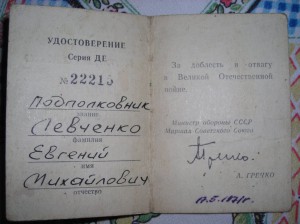 УДОСТОВЕРЕНИЕ
Серия ДЕ
№ 22215
Подполковник
звание
Левченко
фамилия
Евгений
имя
Михайлович
отчество
За доблесть и отвагу
в Великой Отечественной
войне.
Министр обороны СССР
Маршал Советского Союза
Гречко
А. ГРЕЧКО